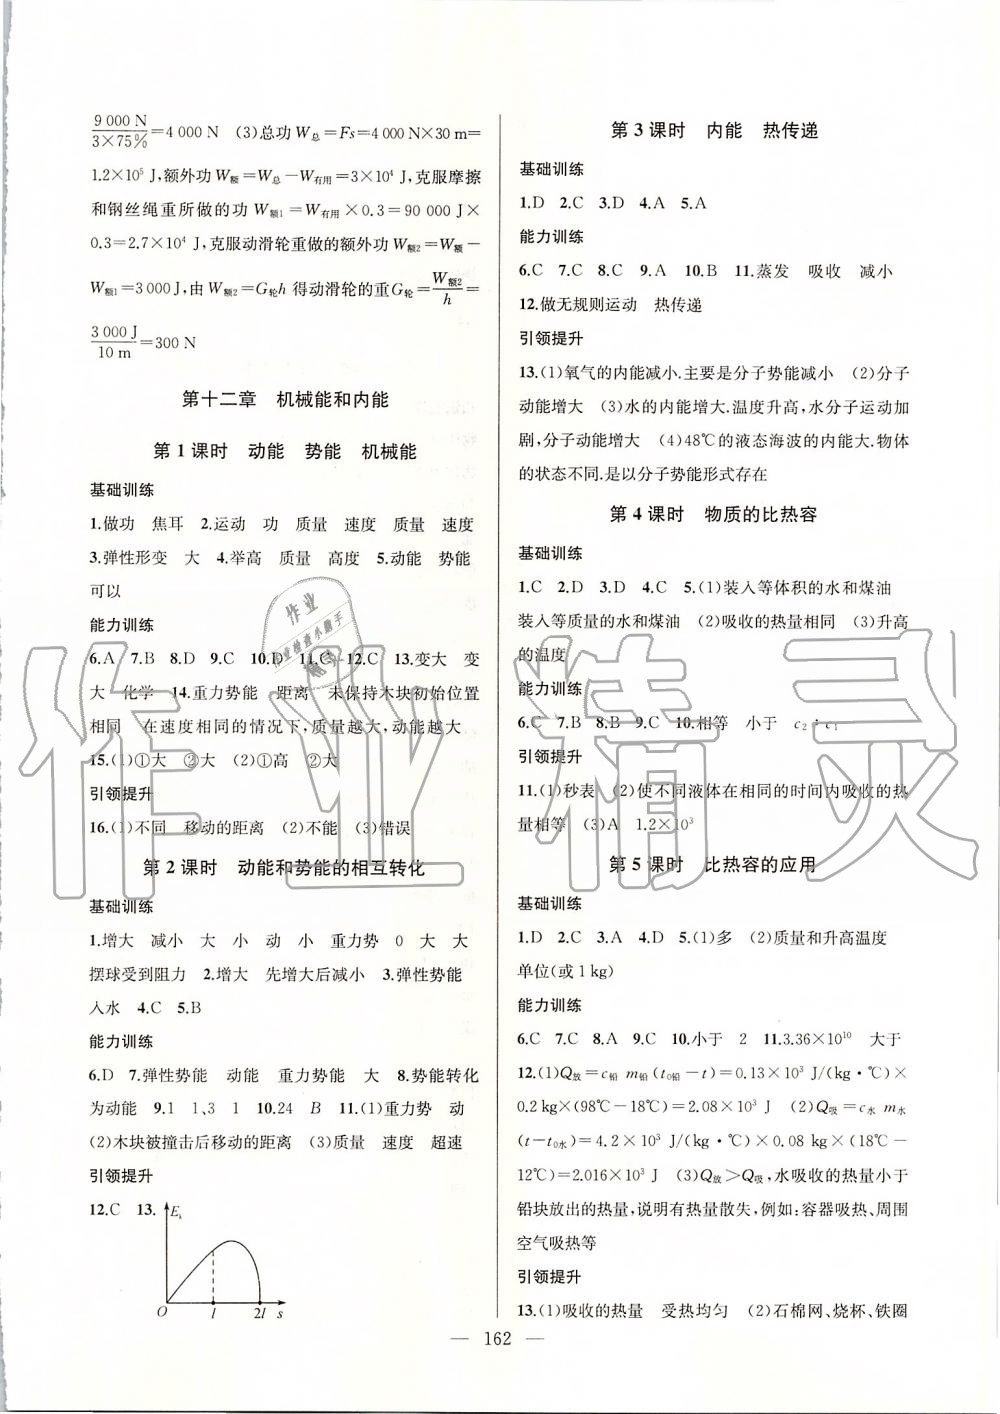 9 000 N/3×75%=4 000 N (3)总功W总=Fs=4 000 N×30 m=
1.2×10⁵ J,额外功W额=W总-W有用=3×10⁴ J,克服摩擦
和钢丝绳重所做的功W额1=W有用×0.3=90 000 J×
0.3=2.7×10⁴ J,克服动滑轮重做的额外功W额2=W额-
W额1=3 000 J,由W额2=G轮h得动滑轮的重G轮=W额2/h=
3 000 J/10 m=300 N
第十二章 机械能和内能
第1课时 动能 势能 机械能
基础训练
1.做功 焦耳 2.运动 功 质量 速度 质量 速度
3.弹性形变 大 4.举高 质量 高度 5.动能 势能
可以
能力训练
6.A 7.B 8.D 9.C 10.D 11.C 12.C 13.变大 变
大 化学 14.重力势能 距离 未保持木块初始位置
相同 在速度相同的情况下,质量越大,动能越大
15.(1)①大 ②大 (2)①高 ②大
引领提升
16.(1)不同 移动的距离 (2)不能 (3)错误
第2课时 动能和势能的相互转化
基础训练
1.增大 减小 大 小 动 小 重力势 0 大 大
摆球受到阻力 2.增大 先增大后减小 3.弹性势能
入水 4.C 5.B
能力训练
6.D 7.弹性势能 动能 重力势能 大 8.势能转化
为动能 9.1 1、3 1 10.24 B 11.(1)重力势 动
(2)木块被撞击后移动的距离 (3)质量 速度 超速
引领提升
12.C 13.
Eₖ
O l 2l s
第3课时 内能 热传递
基础训练
1.D 2.C 3.D 4.A 5.A
能力训练
6.C 7.C 8.C 9.A 10.B 11.蒸发 吸收 减小
12.做无规则运动 热传递
引领提升
13.(1)氧气的内能减小.主要是分子势能减小 (2)分子
动能增大 (3)水的内能增大.温度升高,水分子运动加
剧,分子动能增大 (4)48℃的液态海波的内能大.物体
的状态不同.是以分子势能形式存在
第4课时 物质的比热容
基础训练
1.C 2.D 3.D 4.C 5.(1)装入等体积的水和煤油
装入等质量的水和煤油 (2)吸收的热量相同 (3)升高
的温度
能力训练
6.C 7.B 8.B 9.C 10.相等 小于 c₂∶c₁
引领提升
11.(1)秒表 (2)使不同液体在相同的时间内吸收的热
量相等 (3)A 1.2×10³
第5课时 比热容的应用
基础训练
1.D 2.C 3.A 4.D 5.(1)多 (2)质量和升高温度
单位(或1 kg)
能力训练
6.C 7.C 8.A 9.C 10.小于 2 11.3.36×10¹⁰ 大于
12.(1)Q放=c铅 m铅(t0铅-t)=0.13×10³ J/(kg·℃)×
0.2 kg×(98℃-18℃)=2.08×10³ J (2)Q吸=c水 m水
(t-t0水)=4.2×10³ J/(kg·℃)×0.08 kg×(18℃-
12℃)=2.016×10³ J (3)Q放>Q吸,水吸收的热量小于
铅块放出的热量,说明有热量散失,例如:容器吸热、周围
空气吸热等
引领提升
13.(1)吸收的热量 受热均匀 (2)石棉网、烧杯、铁圈
— 162 —
作业精灵
作业
作业检查小助手